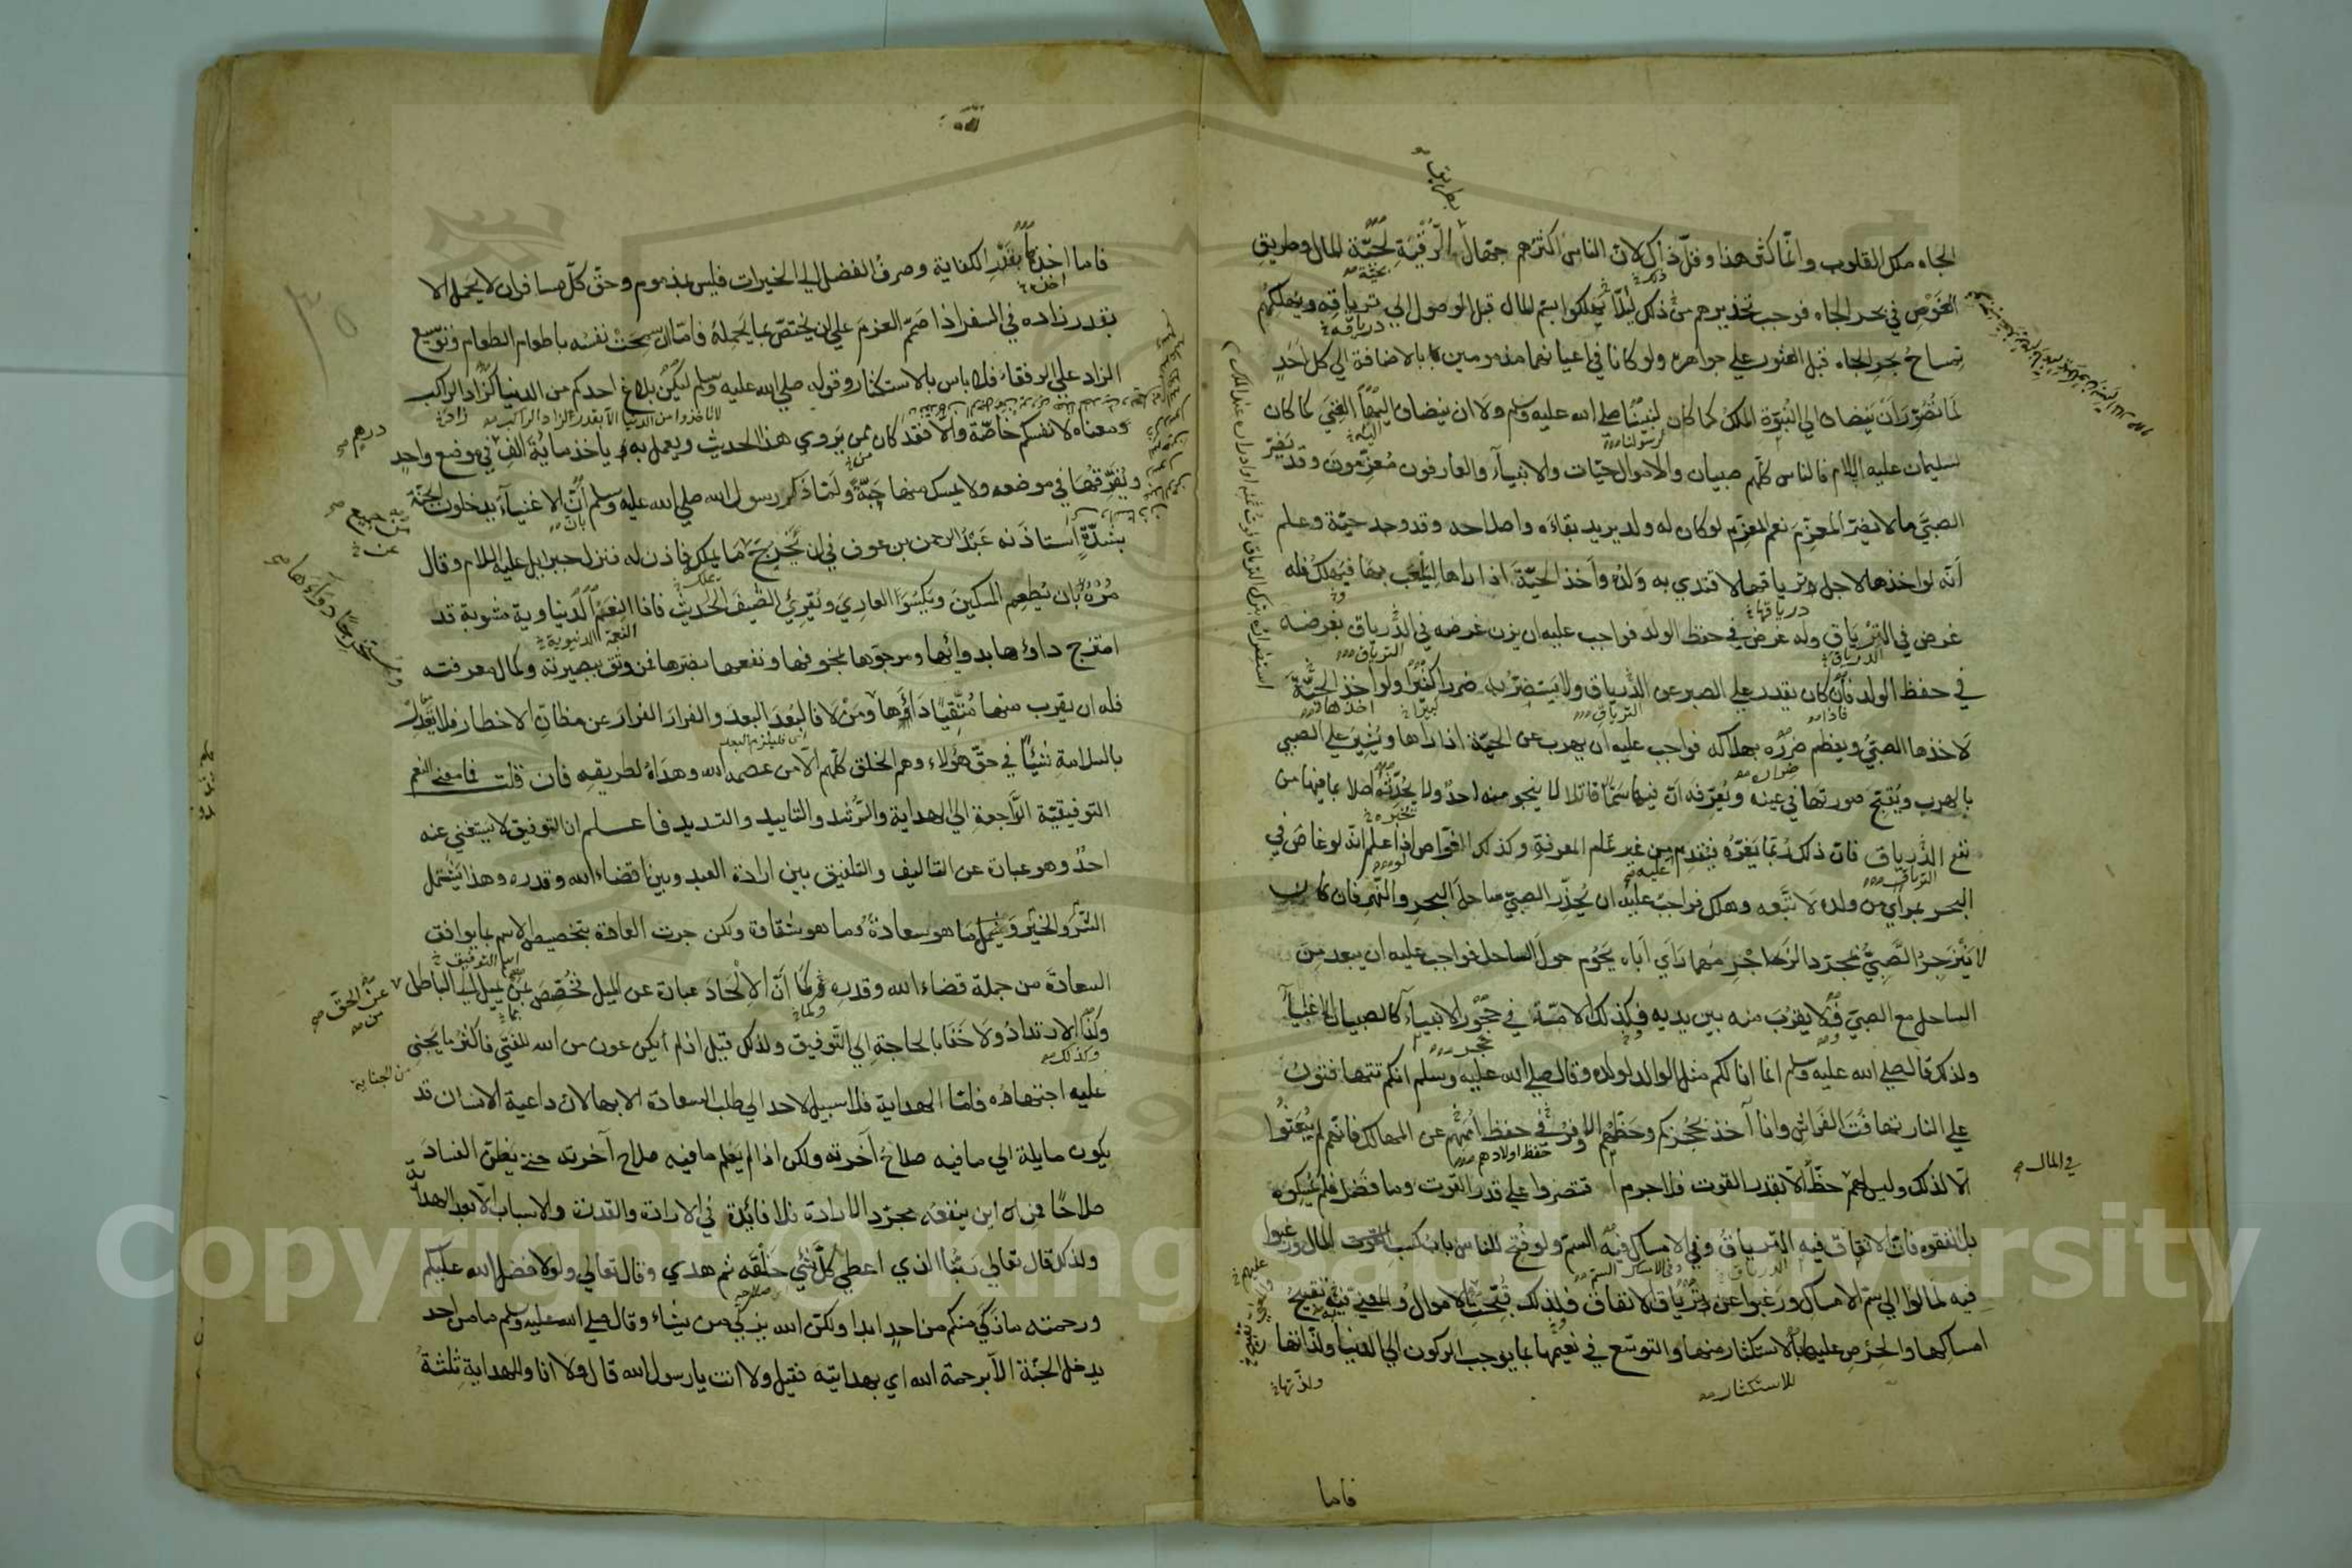 الجاه ملك القلوب وانما كثر هذا وقل ذاك لان الناس اكثرهم جهال الرقية لحية المال وطريق
الغوص في بحر الجاه فوجب تحذيرهم من ذلك لئلا يهلكوا بسم المال قبل الوصول الي ترياقه ويهلكهم
تمساح بحر الجاه قبل العثور علي جواهره ولو كانا في اعيانهما مذمومين بالاضافة الي كل احد
لما تصور ان ينضاف الي النبوة الملك كما كان لنبينا صلي الله عليه وسلم ولا ان ينضاف اليها الغني كما كان
لسليمان عليه السلام فالناس كلهم صبيان والاموال حيات والانبياء والعارفون معزمون وقد يضر
الصبي ما لا يضر المعزم نعم المعزم لو كان له ولد يريد بقاءه واصلاحه وقد وجد حية وعلم
انه لو اخذها لاجل ترياقها لاقتدي به ولده واخذ الحية اذا راها ليلعب بها فيهلك فله
غرض في الترياق وله غرض في حفظ الولد فواجب عليه ان يزن غرضه في الترياق بغرضه
في حفظ الولد فان كان يقدر علي الصبر عن الترياق ولا يستضر به ضررا كثيرا ولو اخذ الحية
لاخذها الصبي ويعظم ضرره بهلاكه فواجب عليه ان يهرب عن الحية اذا راها ويشير علي الصبي
بالهرب ويقبح صورتها في عينه ويعرفه ان فيها سما قاتلا لا ينجو منه احد ولا يحدثه اصلا بما فيها من
نفع الترياق فان ذلك ربما يغره فيقدم من غير تمام المعرفة وكذلك الغواص اذا علم انه لو غاص في
البحر بمرأي من ولده لاتبعه وهلك فواجب عليه ان يحذر الصبي ساحل البحر والنهر فان كان
لا ينزجر الصبي بمجرد الزجر مهما راي اباه يحوم حول الساحل فواجب عليه ان يبعد من
الساحل مع الصبي فلا يقرب منه بين يديه فكذلك الامة في حجر الانبياء كالصبيان الاغبياء
ولذلك قال صلي الله عليه وسلم انما انا لكم مثل الوالد لولده وقال صلي الله عليه وسلم انكم تتهافتون
علي النار تهافت الفراش وانا آخذ بحجزكم وحظهم الاوفر في حفظ اممهم عن المهالك فانهم لم يبعثوا
الا لذلك وليس لهم حظ الا بقدر القوت فلا جرم اقتصروا علي قدر القوت وما فضل فلم يمسكوه
بل انفقوه فان الانفاق فيه الترياق وفي الامساك فيه السم ولو فتح للناس باب كسب المال ورغبوا
فيه لمالوا الي سم الامساك ورغبوا عن ترياق الانفاق فلذلك قبحت الاموال والمعني به تقبيح
امساكها والحرص عليها بالاستكثار منها والتوسع في نعيمها بما يوجب الركون الي الدنيا ولذاتها
في المال
للاستكثار
ولذتها
فاما
فاما اخذها بقدر الكفاية وصرف الفضل الي الخيرات فليس بمذموم وحق كل مسافر ان لا يحمل الا
بقدر زاده في السفر اذا صمم العزم علي ان يختص بما يحمله فاما ان سمحت نفسه باطعام الطعام وتوسيع
الزاد علي الرفقاء فلا باس بالاستكثار وقوله صلي الله عليه وسلم ليكن بلاغ احدكم من الدنيا كزاد الراكب
ومعناه لانفسكم خاصة والا فقد كان ممن يروي هذا الحديث ويعمل به ياخذ ماية الف في موضع واحد
ويفرقها في موضعه ولا يمسك منها حبة ولما ذكر رسول الله صلي الله عليه وسلم ان الاغنياء يدخلون الجنة
بشدة استاذنه عبد الرحمن بن عوف في ان يخرج ما يملك فاذن له فنزل جبرايل عليه السلام وقال
مره بان يطعم المسكين ويكسو العاري ويقري الضيف الحديث فاذا النعم الدنياوية مشوبة قد
امتزج داؤها بدوائها ومرجوها بمخوفها ونفعها بضرها فمن وثق ببصيرته وكمال معرفته
فله ان يقرب منها متقيا داءها ومن لا فالبعد البعد والفرار الفرار عن مظان الاخطار فلا تعدل
بالسلامة شيئا في حق هؤلاء وهم الخلق كلهم الا من عصمه الله وهداه لطريقه فان قلت فما معني النعم
التوفيقية الراجعة الي الهداية والرشد والتاييد والتسديد فاعلم ان التوفيق لا يستغني عنه
احد وهو عبارة عن التاليف والتلفيق بين ارادة العبد وبين قضاء الله وقدره وهذا يشمل
الشر والخير ويشمل ما هو سعادة وما هو شقاوة ولكن جرت العادة بتخصيص الاسم بما يوافق
السعادة من جملة قضاء الله وقدره كما ان الالحاد عبارة عن الميل فخصص بمن يميل الي الباطل
وكذا الارتداد ولا خفا بالحاجة الي التوفيق ولذلك قيل اذا لم يكن عون من الله للفتي فاكثر ما يجني
عليه اجتهاده فاما الهداية فلا سبيل لاحد الي طلب السعادة الا بها لان داعية الانسان قد
يكون مايلة الي ما فيه صلاح آخرته ولكن اذا لم يعلم ما فيه صلاح آخرته حتي يظن الفساد
صلاحا فمن اين ينفعه مجرد الارادة فلا فائدة في الارادة والقدرة والاسباب الا بعد الهداية
ولذلك قال تعالي ربنا الذي اعطي كل شئ خلقه ثم هدي وقال تعالي ولولا فضل الله عليكم
ورحمته ما زكي منكم من احد ابدا ولكن الله يزكي من يشاء وقال صلي الله عليه وسلم ما من احد
يدخل الجنة الا برحمة الله اي بهدايته فقيل ولا انت يا رسول الله قال ولا انا وللهداية ثلثة
درهم
Copyright © King Saud University